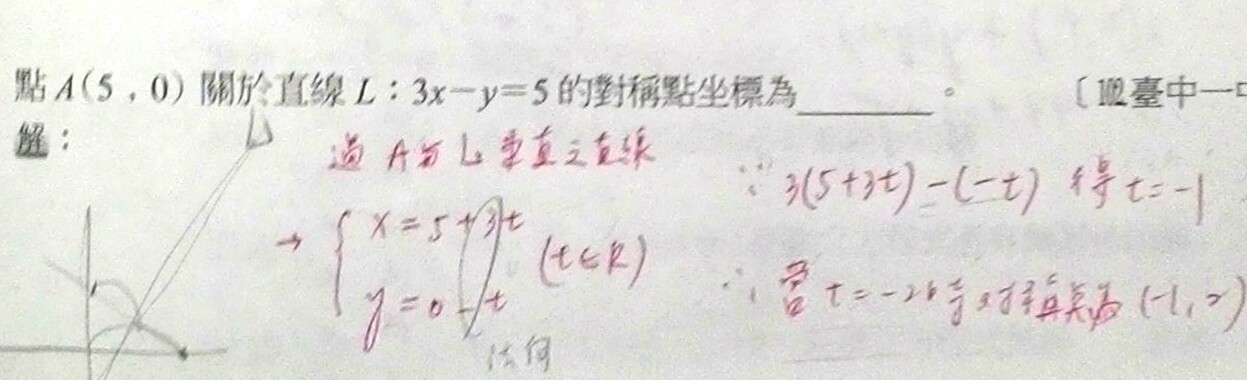 點 A(5,0) 關於直線 L:3x-y=5 的對稱點坐標為________。 〔102臺中一中
解:
L
過 A 與 L 垂直之直線
∵ 3(5+3t)-(-t) 得 t=-1
→ { x=5+3t
y=0-t (t∈R)
∴ 當 t=-2時 對稱點為 (-1,2)
法向